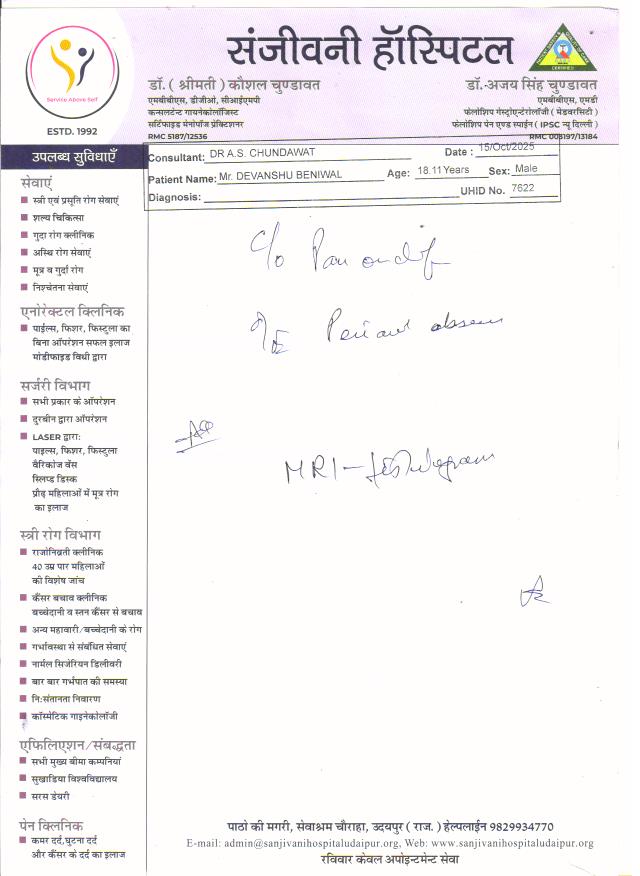 संजीवनी हॉस्पिटल
Service Above Self
ESTD. 1992
डॉ. ( श्रीमती ) कौशल चुण्डावत
एमबीबीएस, डीजीओ, सीआईएमपी
कन्सलटेन्ट गायनेकोलॉजिस्ट
सर्टिफाइड मेनोपॉज प्रेक्टिशनर
RMC 5187/12536
डॉ. अजय सिंह चुण्डावत
एमबीबीएस, एमडी
फेलोशिप गेस्ट्रोएन्टेरोलॉजी ( मेडवरसिटी )
फेलोशिप पेन एण्ड स्पाईन ( IPSC न्यू दिल्ली )
RMC 008197/13184
Consultant: DR A.S. CHUNDAWAT Date : 15/Oct/2025
Patient Name: Mr. DEVANSHU BENIWAL Age: 18.11Years Sex: Male
Diagnosis: UHID No. 7622
उपलब्ध सुविधाएँ
सेवाएं
स्त्री एवं प्रसूति रोग सेवाएं
शल्य चिकित्सा
गुदा रोग क्लीनिक
अस्थि रोग सेवाएं
मूत्र व गुर्दा रोग
निश्चेतना सेवाएं
एनोरेक्टल क्लिनिक
पाईल्स, फिशर, फिस्टुला का
बिना ऑपरेशन सफल इलाज
मोडीफाइड विधी द्वारा
सर्जरी विभाग
सभी प्रकार के ऑपरेशन
दुरबीन द्वारा ऑपरेशन
LASER द्वारा:
पाइल्स, फिशर, फिस्टुला
वैरिकोज वेंस
स्लिप्ड डिस्क
प्रौढ़ महिलाओं में मूत्र रोग
का इलाज
स्त्री रोग विभाग
राजोनिव्रती क्लीनिक
40 उम्र पार महिलाओं
की विशेष जांच
कैंसर बचाव क्लीनिक
बच्चेदानी व स्तन कैंसर से बचाव
अन्य महावारी/बच्चेदानी के रोग
गर्भावस्था से संबंधित सेवाएं
नार्मल सिजेरियन डिलीवरी
बार बार गर्भपात की समस्या
नि:संतानता निवारण
कॉस्मेटिक गाइनेकोलॉजी
एफिलिएशन/संबद्धता
सभी मुख्य बीमा कम्पनियां
सुखाडिया विश्वविद्यालय
सरस डेयरी
पेन क्लिनिक
कमर दर्द,घुटना दर्द
और कैंसर के दर्द का इलाज
C/o Pain on dif
O/E Perianal abscess
Adv
MRI - fistulogram
पाठो की मगरी, सेवाश्रम चौराहा, उदयपुर ( राज. ) हेल्पलाईन 9829934770
E-mail: admin@sanjivanihospitaludaipur.org, Web: www.sanjivanihospitaludaipur.org
रविवार केवल अपोइन्टमेन्ट सेवा